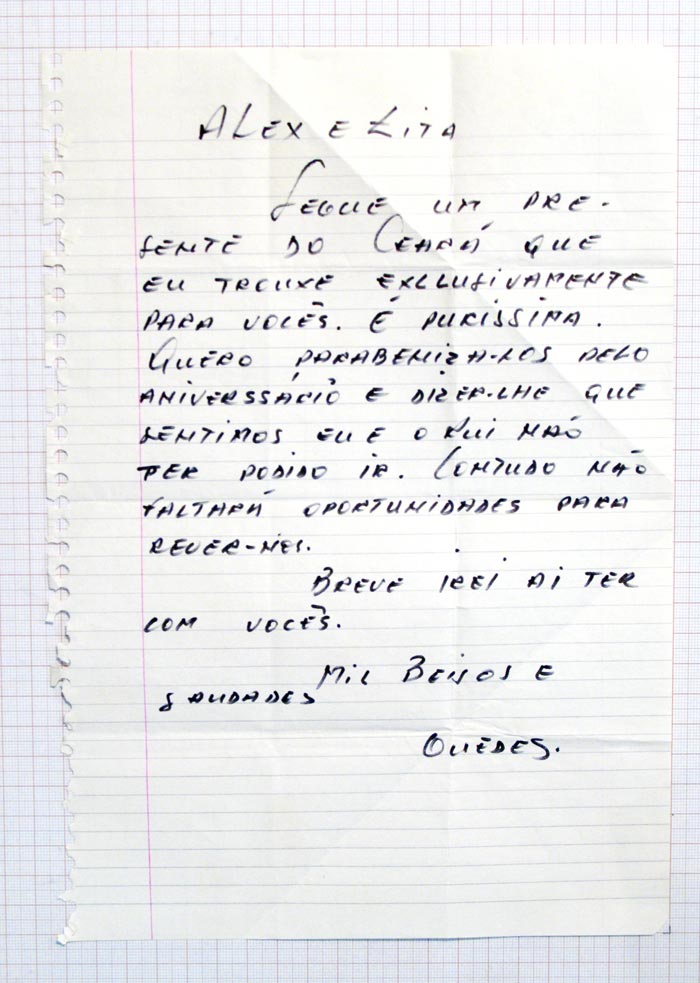 ALEX E LITA
SEGUE UM PRE-
SENTE DO CEARÁ QUE
EU TROUXE EXCLUSIVAMENTE
PARA VOCÊS. É PURISSIMA.
QUERO PARABENIZA-LOS PELO
ANIVERSSÁRIO E DIZER-LHE QUE
SENTIMOS EU E O RUI NÃO
TER PODIDO IR. CONTUDO NÃO
FALTARÁ OPORTUNIDADES PARA
REVER-NOS.
BREVE IREI AI TER
COM VOCÊS.
MIL BEIJOS E
SAUDADES
GUEDES.